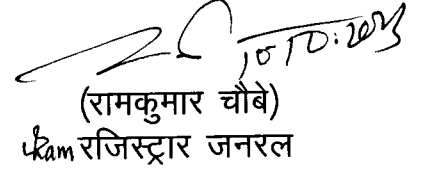 10:10:2023
(रामकुमार चौबे)
रजिस्ट्रार जनरल